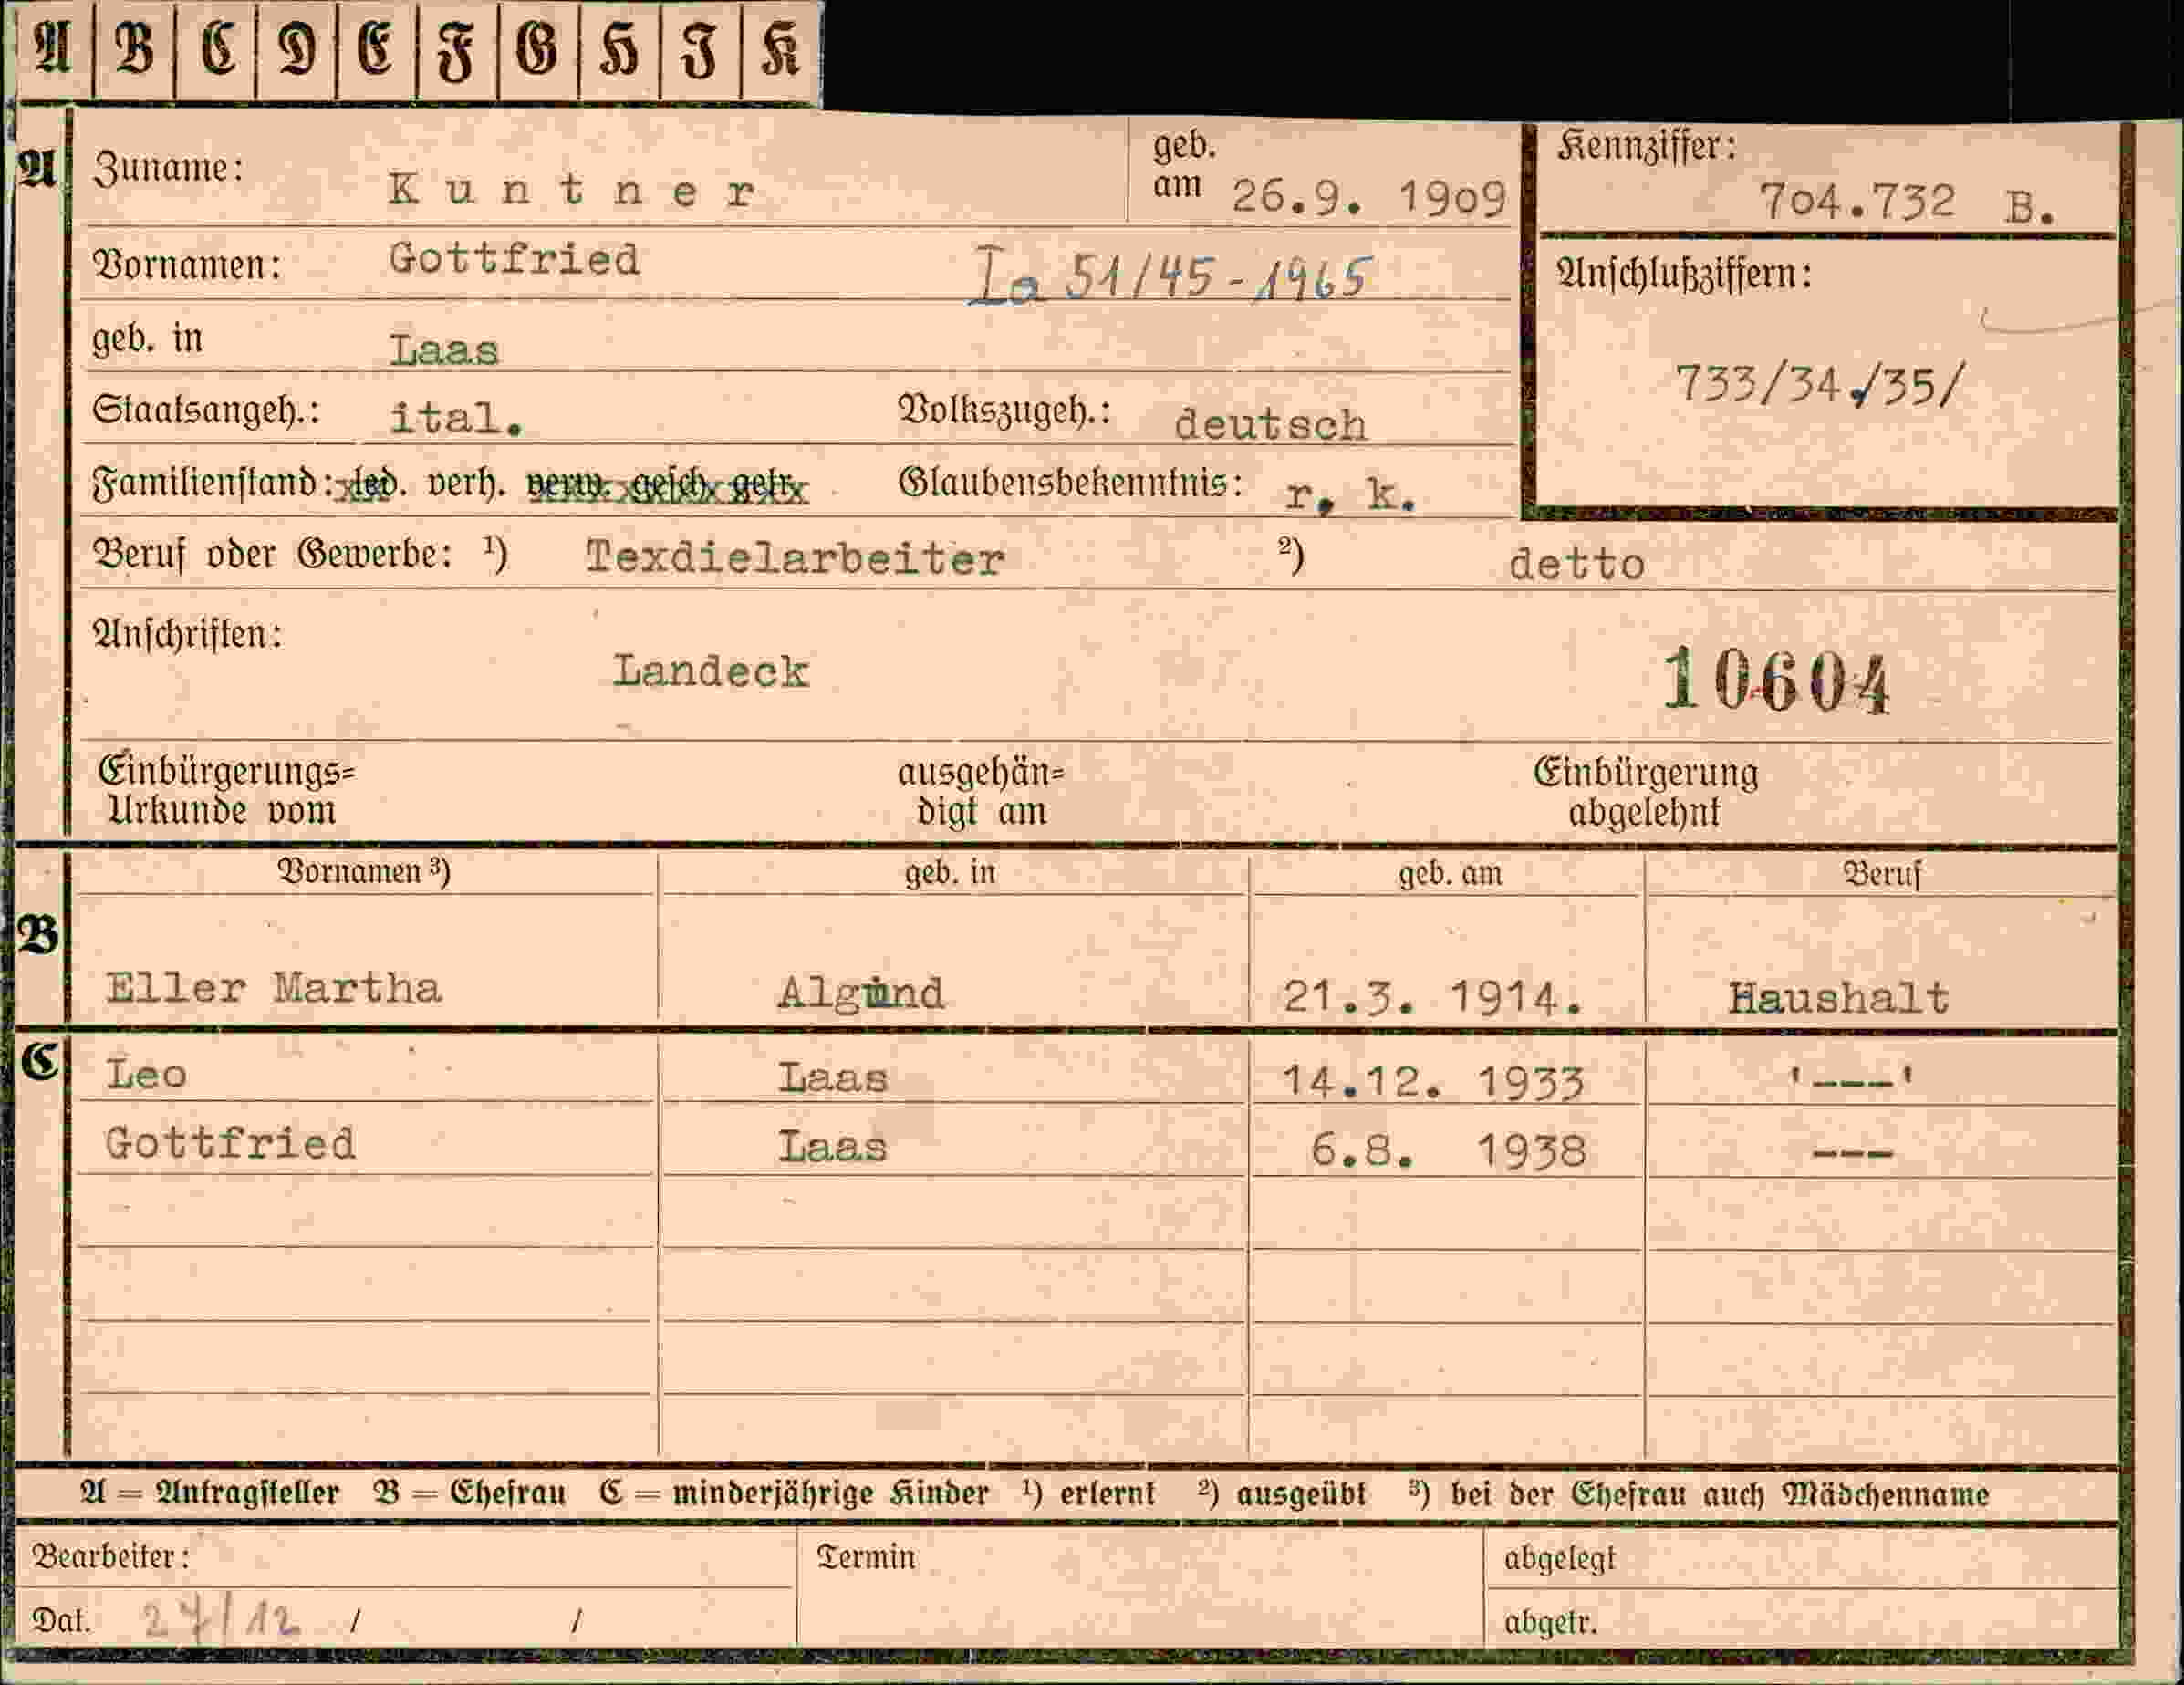 A B C D E F G H I K
A Zuname: Kuntner geb. am 26.9. 1909 Kennziffer: 704.732 B.
Vornamen: Gottfried Ia 51/45-1965 Anschlußziffern:
geb. in Laas
733/34/35/
Staatsangeh.: ital. Volkszugeh.: deutsch
Familienstand: led. verh. verw. gesch. getr. Glaubensbekenntnis: r. k.
Beruf oder Gewerbe: ¹) Texdielarbeiter ²) detto
Anschriften:
Landeck 10604
Einbürgerungs= ausgehän= Einbürgerung
Urkunde vom digt am abgelehnt
Vornamen ³) geb. in geb. am Beruf
B
Eller Martha Algund 21.3. 1914. Haushalt
C Leo Laas 14.12. 1933 '---'
Gottfried Laas 6.8. 1938 ---
A = Antragsteller B = Ehefrau C = minderjährige Kinder ¹) erlernt ²) ausgeübt ³) bei der Ehefrau auch Mädchenname
Bearbeiter: Termin abgelegt
Dat. 27/12 / / abgetr.